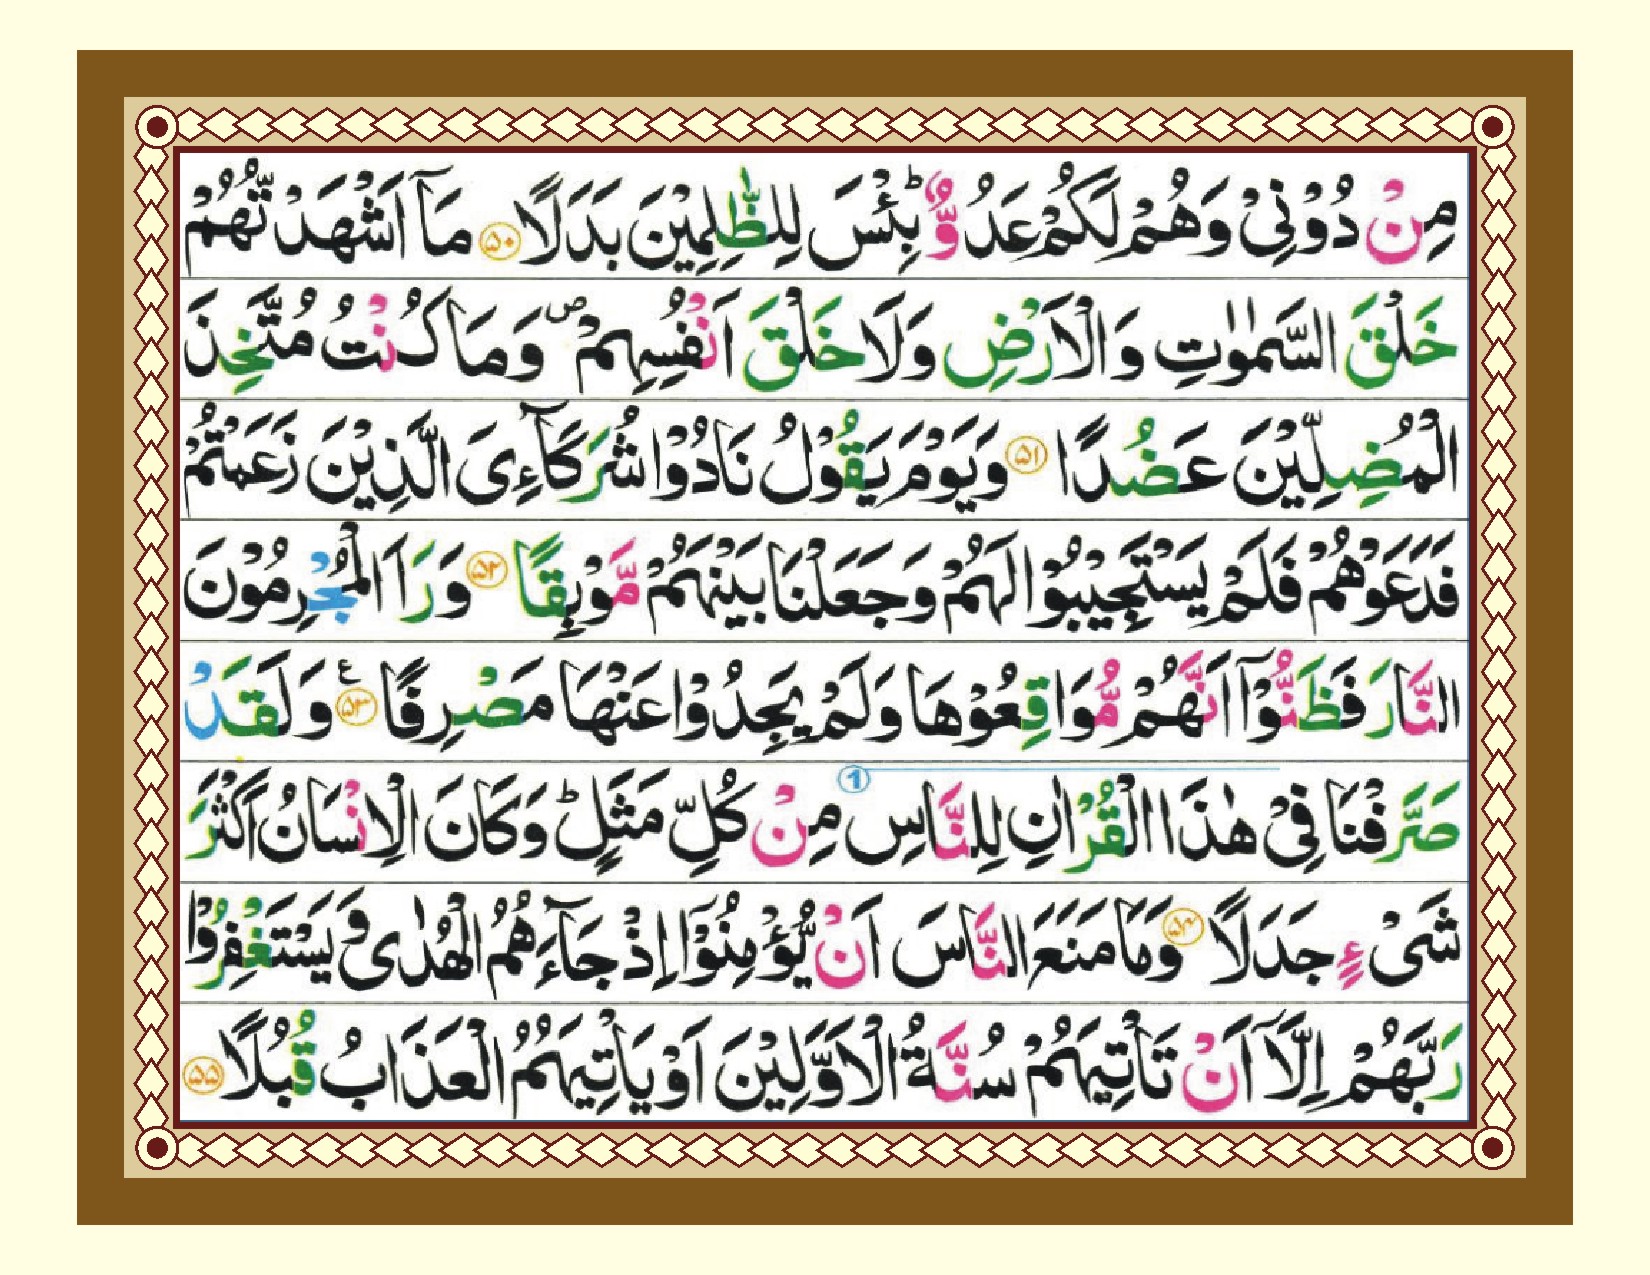 مِنْ دُوْنِیْ وَهُمْ لَكُمْ عَدُوٌّ ؕ بِئْسَ لِلظّٰلِمِیْنَ بَدَلًا ۝۵۰ مَاۤ اَشْهَدْتُّهُمْ
خَلْقَ السَّمٰوٰتِ وَالْاَرْضِ وَلَا خَلْقَ اَنْفُسِهِمْ ۪ وَمَا كُنْتُ مُتَّخِذَ
الْمُضِلِّیْنَ عَضُدًا ۝۵۱ وَیَوْمَ یَقُوْلُ نَادُوْا شُرَكَآءِیَ الَّذِیْنَ زَعَمْتُمْ
فَدَعَوْهُمْ فَلَمْ یَسْتَجِیْبُوْا لَهُمْ وَجَعَلْنَا بَیْنَهُمْ مَّوْبِقًا ۝۵۲ وَرَاَ الْمُجْرِمُوْنَ
النَّارَ فَظَنُّوْۤا اَنَّهُمْ مُّوَاقِعُوْهَا وَلَمْ یَجِدُوْا عَنْهَا مَصْرِفًا ۝۵۳ ع وَلَقَدْ
صَرَّفْنَا فِیْ هٰذَا الْقُرْاٰنِ لِلنَّاسِ 1 مِنْ كُلِّ مَثَلٍ ؕ وَكَانَ الْاِنْسَانُ اَكْثَرَ
شَیْءٍ جَدَلًا ۝۵۴ وَمَا مَنَعَ النَّاسَ اَنْ یُّؤْمِنُوْۤا اِذْ جَآءَهُمُ الْهُدٰی وَیَسْتَغْفِرُوْا
رَبَّهُمْ اِلَّاۤ اَنْ تَاْتِیَهُمْ سُنَّةُ الْاَوَّلِیْنَ اَوْ یَاْتِیَهُمُ الْعَذَابُ قُبُلًا ۝۵۵